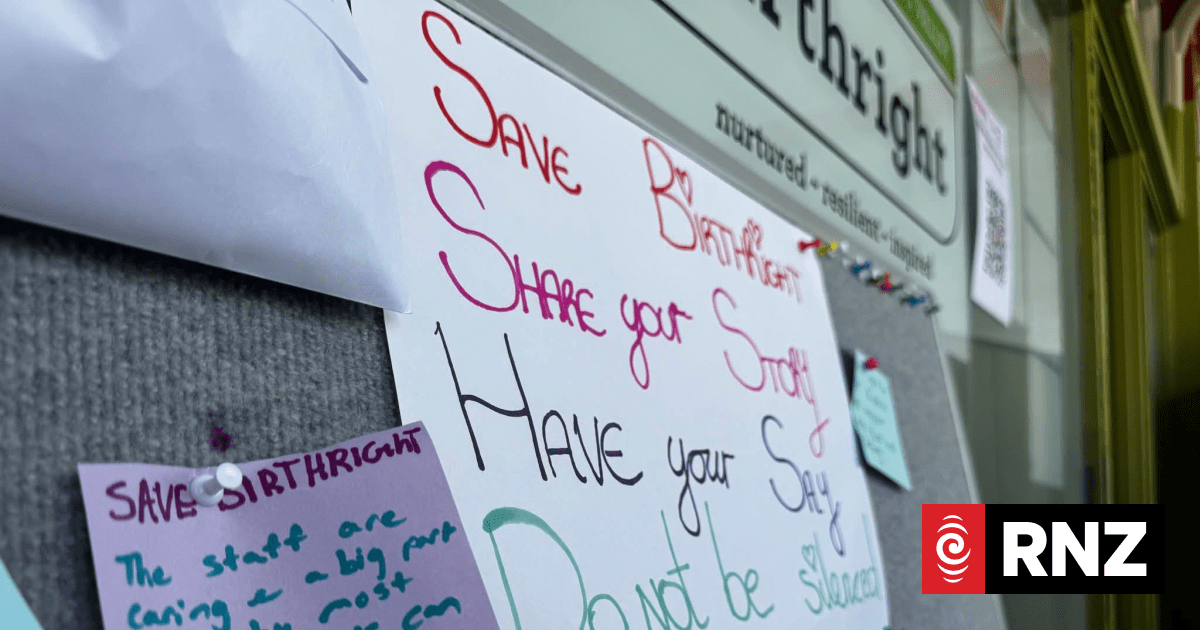 Save Birthright
Share your Story
Have your Say
Do Not be silenced
SAVE BIRTHRIGHT
The staff are
caring & a big part
most
can
nurtured - resilient - inspired
RNZ